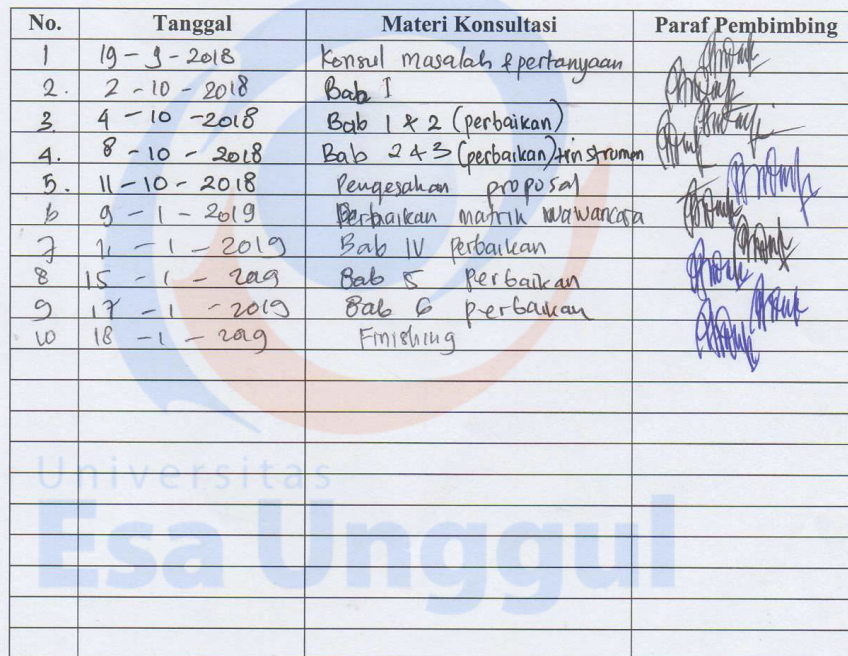 No. Tanggal Materi Konsultasi Paraf Pembimbing
1 19 - 9 - 2018 Konsul masalah & pertanyaan
2. 2 - 10 - 2018 Bab I
3. 4 - 10 - 2018 Bab 1 & 2 (perbaikan)
4. 8 - 10 - 2018 Bab 2 & 3 (perbaikan) + instrumen
5. 11 - 10 - 2018 Pengesahan proposal
6 9 - 1 - 2019 Perbaikan matrik wawancara
7 11 - 1 - 2019 Bab IV perbaikan
8 15 - 1 - 2019 Bab 5 perbaikan
9 17 - 1 - 2019 Bab 6 perbaikan
10 18 - 1 - 2019 Finishing
Universitas
Esa Unggul